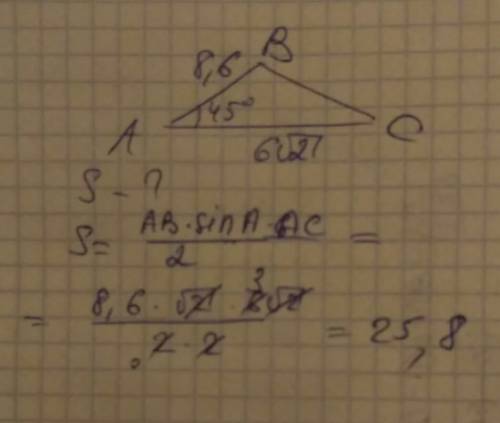 B
8,6
45°
A
6√2
C
S - ?
S = AB · sin A · AC / 2 =
= 8,6 · √2 · 6 3 √2 / 2 · 2 = 25,8